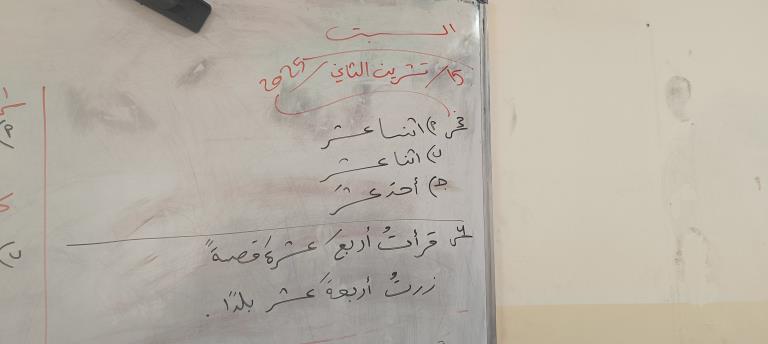 السبت
15/ تشرين الثاني / 2025
اثنا عشر
ب) اثنا عشر
ج) أحدَ عشرَ
قرأتُ أربعَ عشرةَ قصةً
زرتُ أربعةَ عشر بلدًا .